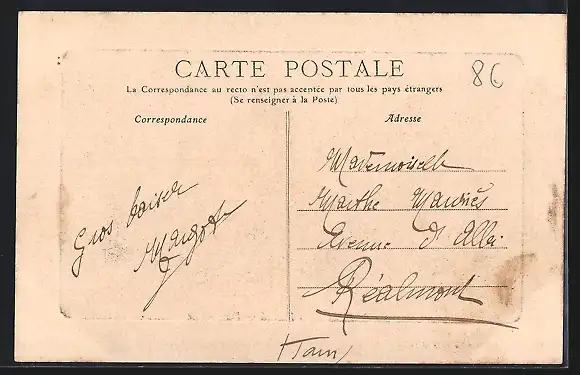 CARTE POSTALE
86
La Correspondance au recto n'est pas acceptée par tous les pays étrangers
(Se renseigner à la Poste)
Correspondance
Adresse
Gros baiser
Margot
Mademoiselle
Marthe Mauriès
Avenue d'Albi
Réalmont
(Tarn)